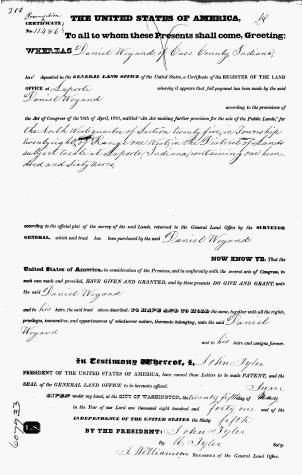 Preemption
CERTIFICATE
No. 11486
THE UNITED STATES OF AMERICA,
To all to whom these Presents shall come, Greeting:
WHEREAS Daniel Woyand, of Cass County Indiana,
ha deposited in the GENERAL LAND OFFICE of the United States, a Certificate of the REGISTER OF THE LAND
OFFICE at Laporte whereby it appears that full payment has been made by the said
Daniel Woyand
according to the provisions of
the Act of Congress of the 24th of April, 1820, entitled "An Act making further provision for the sale of the Public Lands," for
the North West quarter of Section twenty five, in Township
twenty eight, of Range one West, in the District of Lands
subject to sale at Laporte, Indiana, containing one hun-
dred and sixty acres,
according to the official plat of the survey of the said Lands, returned to the General Land Office by the SURVEYOR
GENERAL, which said tract has been purchased by the said Daniel Woyand
NOW KNOW YE, That the
United States of America, in consideration of the Premises, and in conformity with the several acts of Congress, in
such case made and provided, HAVE GIVEN AND GRANTED, and by these presents DO GIVE AND GRANT, unto
the said Daniel Woyand
and to his heirs, the said tract above described: TO HAVE AND TO HOLD the same, together with all the rights,
privileges, immunities, and appurtenances of whatsoever nature, thereunto belonging, unto the said Daniel
Woyand
and to his heirs and assigns forever.
In Testimony Whereof, I, John Tyler
PRESIDENT OF THE UNITED STATES OF AMERICA, have caused these Letters to be made PATENT, and the
SEAL of the GENERAL LAND OFFICE to be hereunto affixed.
June
GIVEN under my hand, at the CITY OF WASHINGTON, the twenty fifth day of May
in the Year of our Lord one thousand eight hundred and forty one and of the
INDEPENDENCE OF THE UNITED STATES the Sixty fifth
BY THE PRESIDENT: John Tyler
By R. Tyler Sec'y.
J. Williamson RECORDER of the General Land Office
L.S.